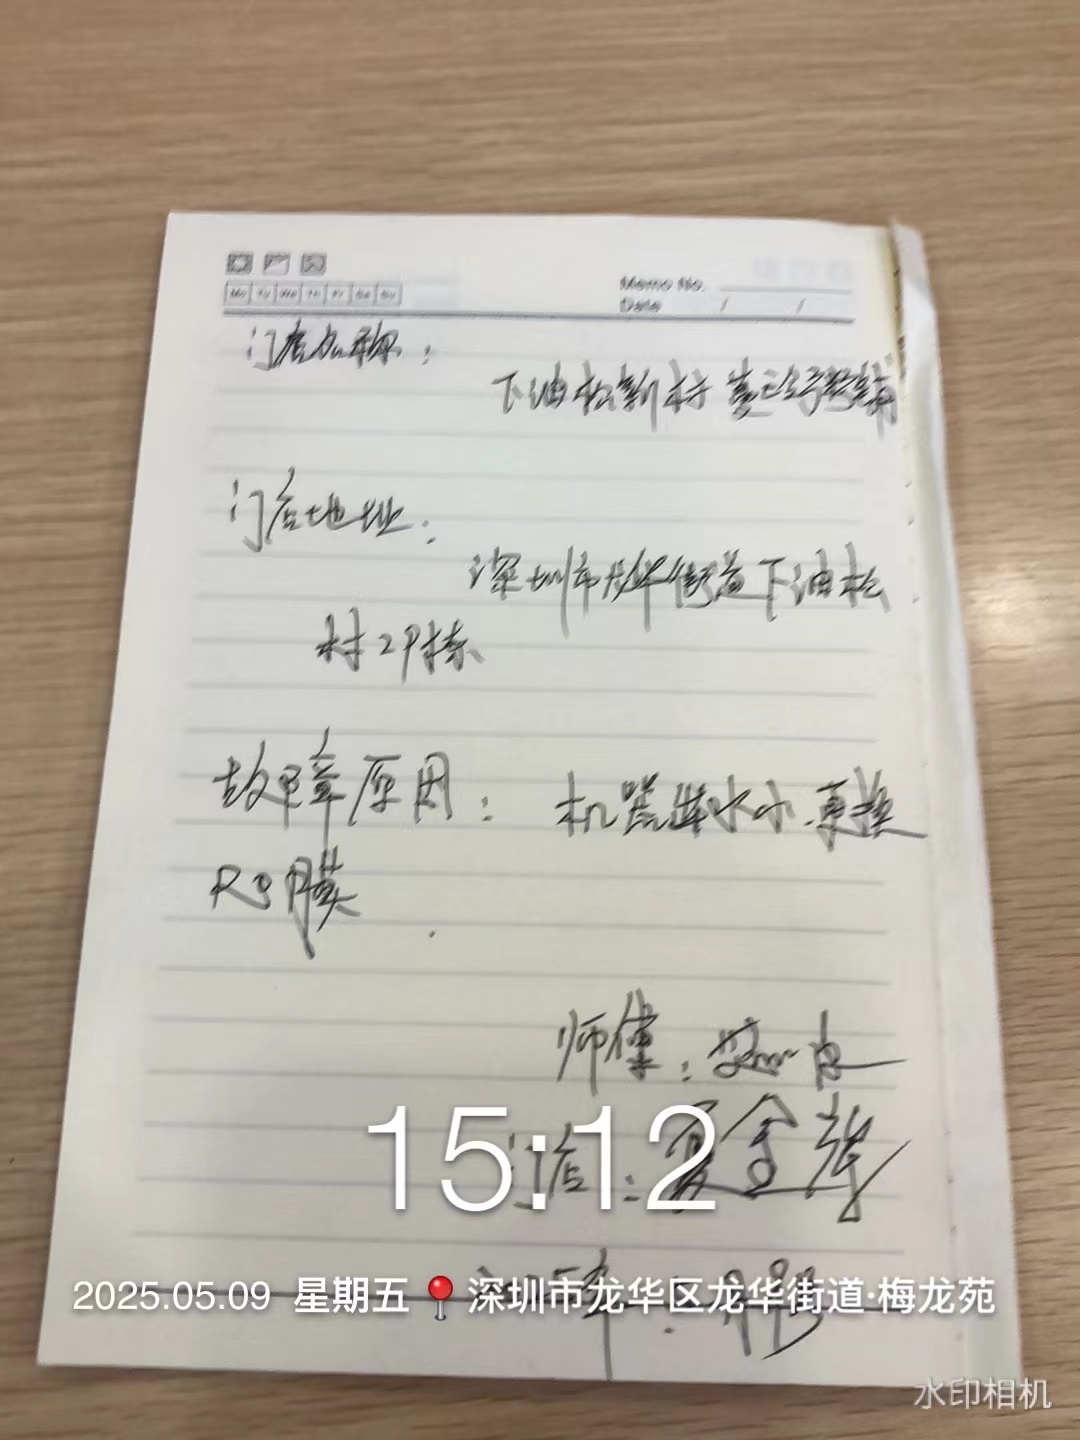 Mo Tu We Th Fr Sa Su
Memo No.
Date / /
门店名称：
下油松新村
门店地址：
深圳市龙华街道下油松
村29栋
故障原因：机器进水小.更换
RO膜.
师傅：
15:12
门店：夏金
2025.05.09 星期五 深圳市龙华区龙华街道·梅龙苑
水印相机